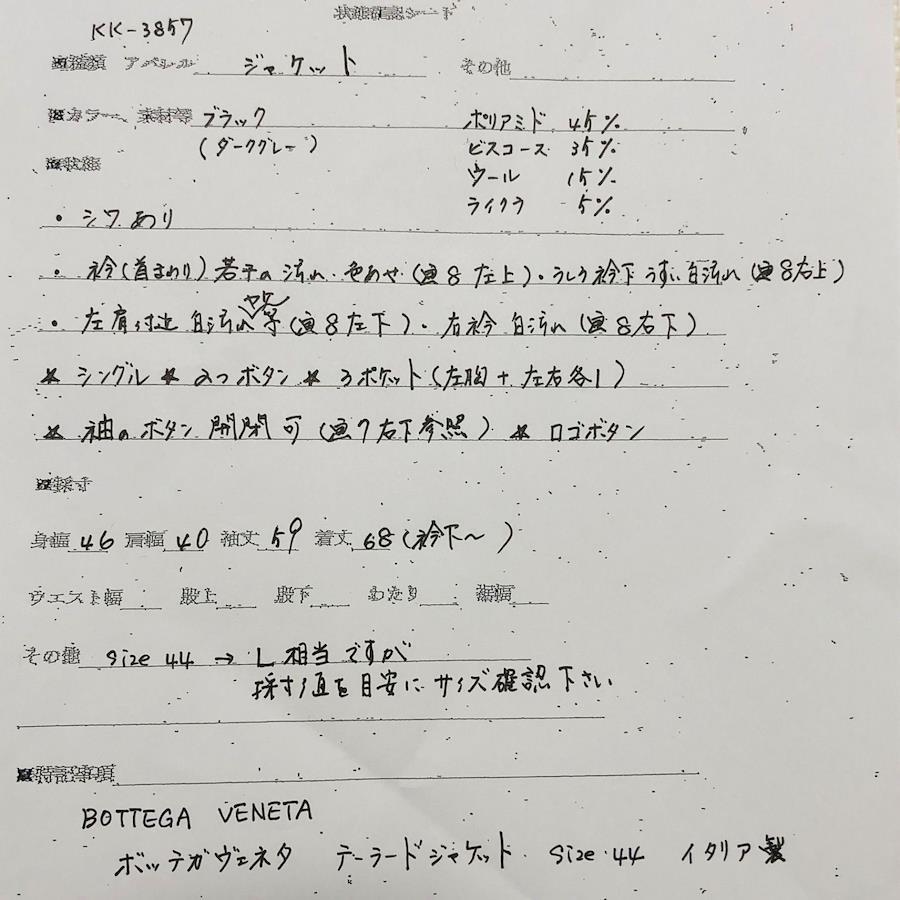 状態確認シート
KK-3857
■種類 アパレル ジャケット その他
■カラー、素材等 ブラック ポリアミド 45%
(ダークグレー) ビスコース 35%
■状態 ウール 15%
ライクラ 5%
・シワあり
・衿(首まわり)若干の汚れ・色あせ(画8左上)・うしろ衿下うすい白汚れ(画8右上)
・左肩付近 白汚れ 等(画8左下)・右衿 白汚れ(画8右下)
★ シングル ★ 2つボタン ★ 3ポケット(左胸+左右各1)
★ 袖のボタン 開閉 可(画7右下参照) ★ ロゴボタン
■採寸
身幅 46 肩幅 40 袖丈 59 着丈 68(衿下〜)
ウエスト幅 股上 股下 わたり 裾幅
その他 size 44 → L相当ですが
採寸値を目安にサイズ確認下さい
■特記事項
BOTTEGA VENETA
ボッテガヴェネタ テーラードジャケット size 44 イタリア製